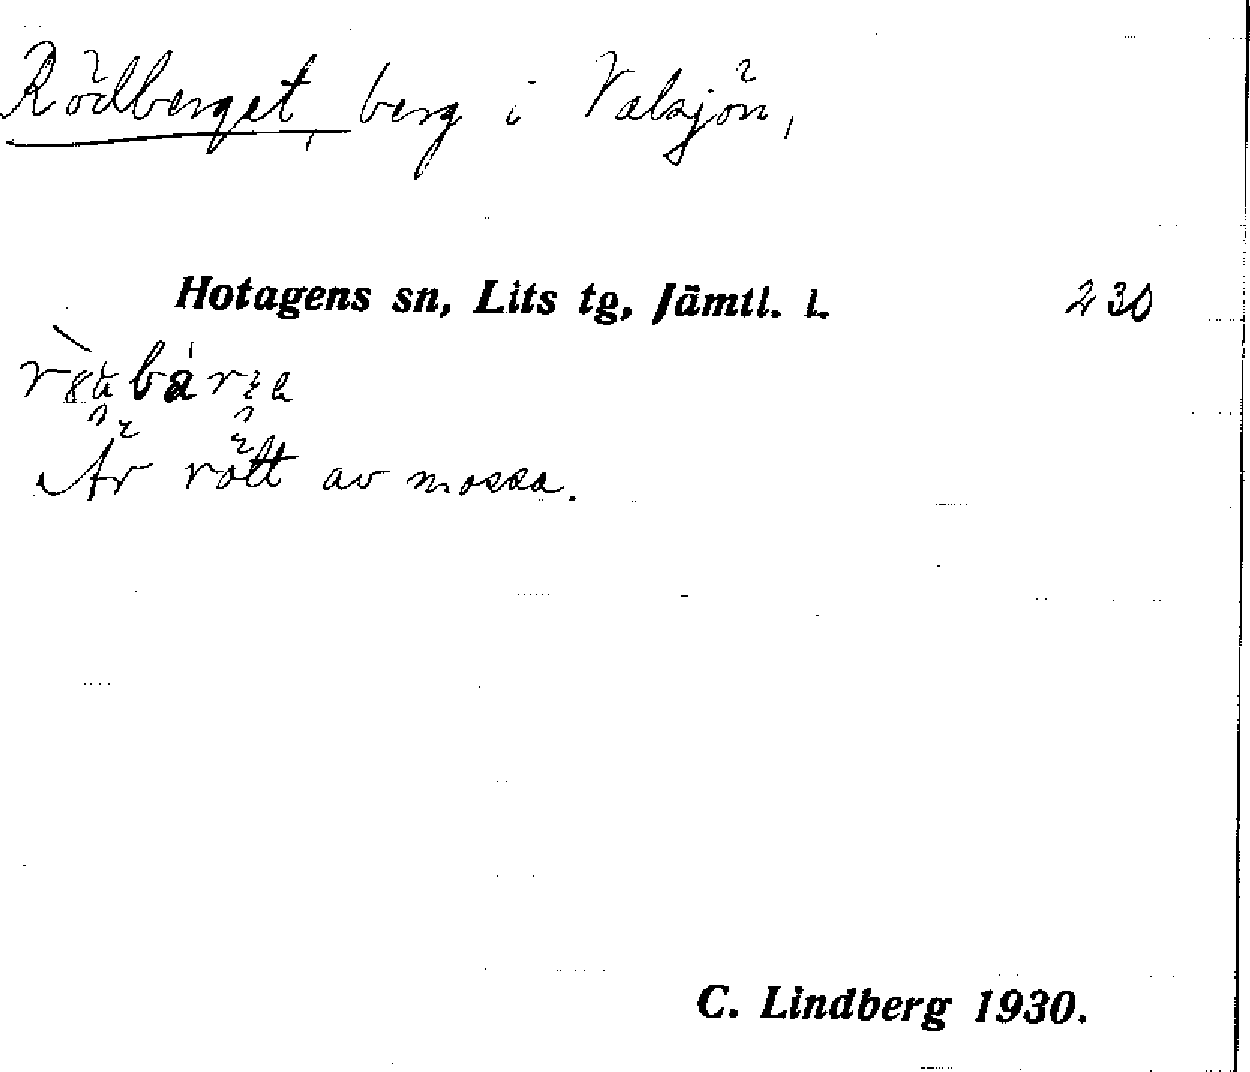 Rödberget, berg i Valsjön,
Hotagens sn, Lits tg, Jämtl. l. 230
Är rött av mossa.
C. Lindberg 1930.